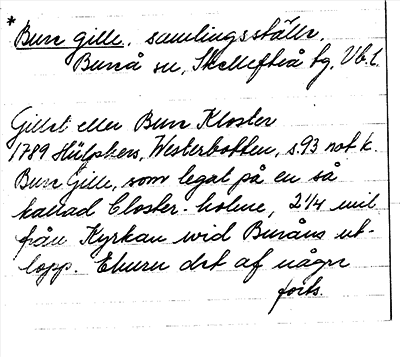 * Bure gille, samlingsställe.
Bureå sn, Skellefteå tg, Vb.l.
Gillet eller Bure Kloster
1789 Hülphers, Westerbotten, s.93 not k.
Bure Gille, som legat på en så
kallad Closter-holme, 2 1/4 mil
från Kyrkan wid Buråns ut-
lopp. Ehuru det af några
forts.